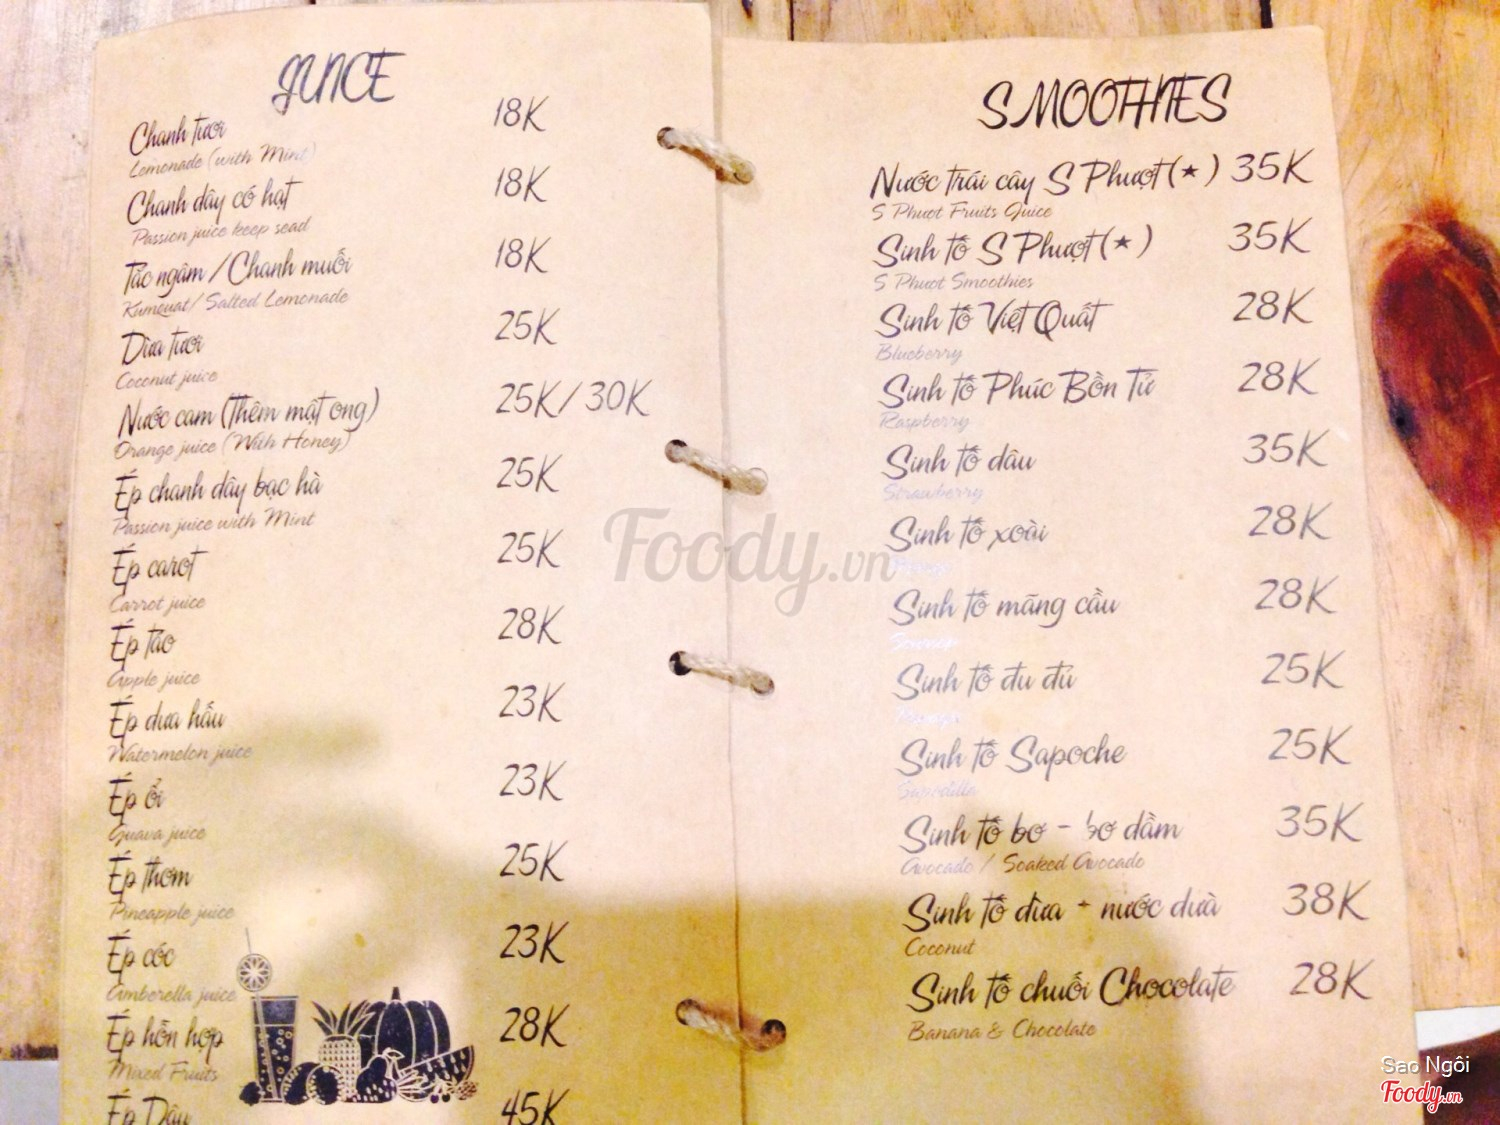 JUICE
Chanh tươi 18K
Lemonade (with Mint)
Chanh dây có hạt 18K
Passion juice keep sead
Tắc ngâm / Chanh muối 18K
Kumquat / Salted Lemonade
Dừa tươi 25K
Coconut juice
Nước cam (Thêm mật ong) 25K / 30K
Orange juice (With Honey)
Ép chanh dây bạc hà 25K
Passion juice with Mint
Ép carot 25K
Carrot juice
Ép táo 28K
Apple juice
Ép dưa hấu 23K
Watermelon juice
Ép ổi 23K
Guava juice
Ép thơm 25K
Pineapple juice
Ép cóc 23K
Amberella juice
Ép hỗn hợp 28K
Mixed Fruits
Ép Dâu 45K
SMOOTHIES
Nước trái cây S Phượt (★) 35K
S Phượt Fruits Juice
Sinh tố S Phượt (★) 35K
S Phượt Smoothies
Sinh tố Việt Quất 28K
Blueberry
Sinh tố Phúc Bồn Tử 28K
Raspberry
Sinh tố dâu 35K
Strawberry
Sinh tố xoài 28K
Sinh tố mãng cầu 28K
Soursop
Sinh tố đu đủ 25K
Sinh tố Sapoche 25K
Sapodilla
Sinh tố bơ - bơ dầm 35K
Avocado / Soaked Avocado
Sinh tố dừa + nước dừa 38K
Coconut
Sinh tố chuối Chocolate 28K
Banana & Chocolate
Foody.vn
Sao Ngôi
Foody.vn